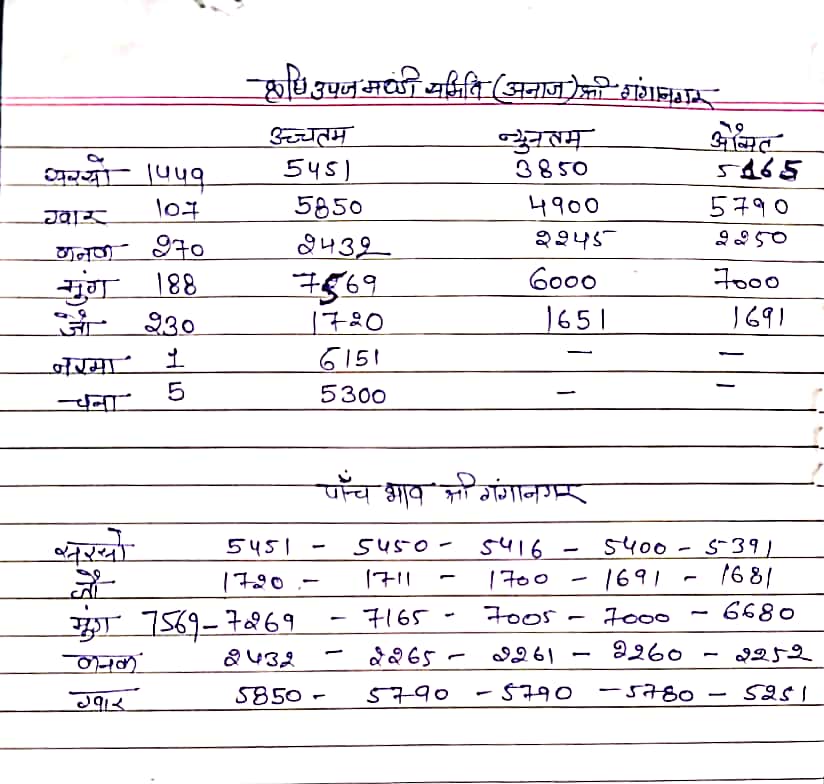 कृषि उपज मण्डी समिति (अनाज) श्री गंगानगर
उच्चतम न्युनतम औसत
सरसों 1449 5451 3850 5165
ग्वार 107 5850 4900 5790
कनक 270 2432 2245 2250
मुंग 188 7569 6000 7000
जौ 230 1720 1651 1691
नरमा 1 6151 - -
चना 5 5300 - -
पाँच भाव श्री गंगानगर
सरसो 5451 - 5450 - 5416 - 5400 - 5391
जौ 1720 - 1711 - 1700 - 1691 - 1681
मुंग 7569 - 7269 - 7165 - 7005 - 7000 - 6680
कनक 2432 - 2265 - 2261 - 2260 - 2252
ग्वार 5850 - 5790 - 5790 - 5780 - 5251